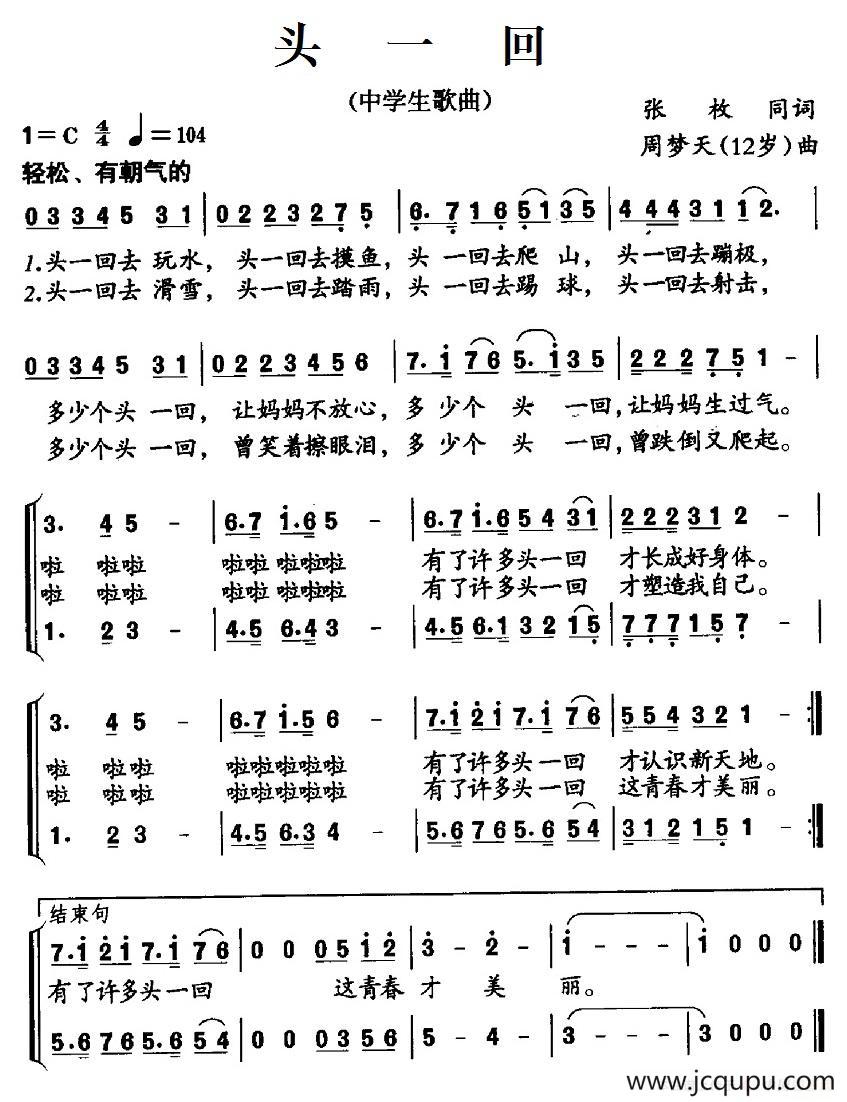 头 一 回
(中学生歌曲)
1=C 4/4 ♩=104
张 枚 同词
周梦天(12岁)曲
轻松、有朝气的
0 3 3 4 5 3 1 | 0 2 2 3 2 7 5 | 6. 7 1 6 5 1 3 5 | 4 4 4 3 1 1 2. |
1.头一回去 玩水, 头一回去摸鱼, 头 一回去爬 山, 头一回去蹦极,
2.头一回去 滑雪, 头一回去踏雨, 头 一回去踢 球, 头一回去射击,
0 3 3 4 5 3 1 | 0 2 2 3 4 5 6 | 7. i 7 6 5. i 3 5 | 2 2 2 7 5 1 - |
多少个头 一回, 让妈妈不放心, 多 少个 头 一回, 让妈妈生过气。
多少个头 一回, 曾笑着擦眼泪, 多 少个 头 一回, 曾跌倒又爬起。
3. 4 5 - | 6. 7 i. 6 5 - | 6. 7 i. 6 5 4 3 1 | 2 2 2 3 1 2 - |
啦 啦啦 啦啦 啦啦啦 有了许多头一回 才长成好身体。
啦 啦啦 啦啦 啦啦啦 有了许多头一回 才塑造我自己。
1. 2 3 - | 4. 5 6. 4 3 - | 4. 5 6. 1 3 2 1 5 | 7 7 7 1 5 7 - |
3. 4 5 - | 6. 7 i. 5 6 - | 7. i 2 i 7. i 7 6 | 5 5 4 3 2 1 - :|
啦 啦啦 啦啦啦啦啦 有了许多头一回 才认识新天地。
啦 啦啦 啦啦啦啦啦 有了许多头一回 这青春才美丽。
1. 2 3 - | 4. 5 6. 3 4 - | 5. 6 7 6 5. 6 5 4 | 3 1 2 1 5 1 - :|
结束句
7. i 2 i 7. i 7 6 | 0 0 0 5 i 2 | 3 - 2 - | i - - - | i 0 0 0 |
有了许多头一回 这青春 才 美 丽。
5. 6 7 6 5. 6 5 4 | 0 0 0 5 3 4 | 5 - 4 - | 3 - - - | 3 0 0 0 |
www.jcqupu.com